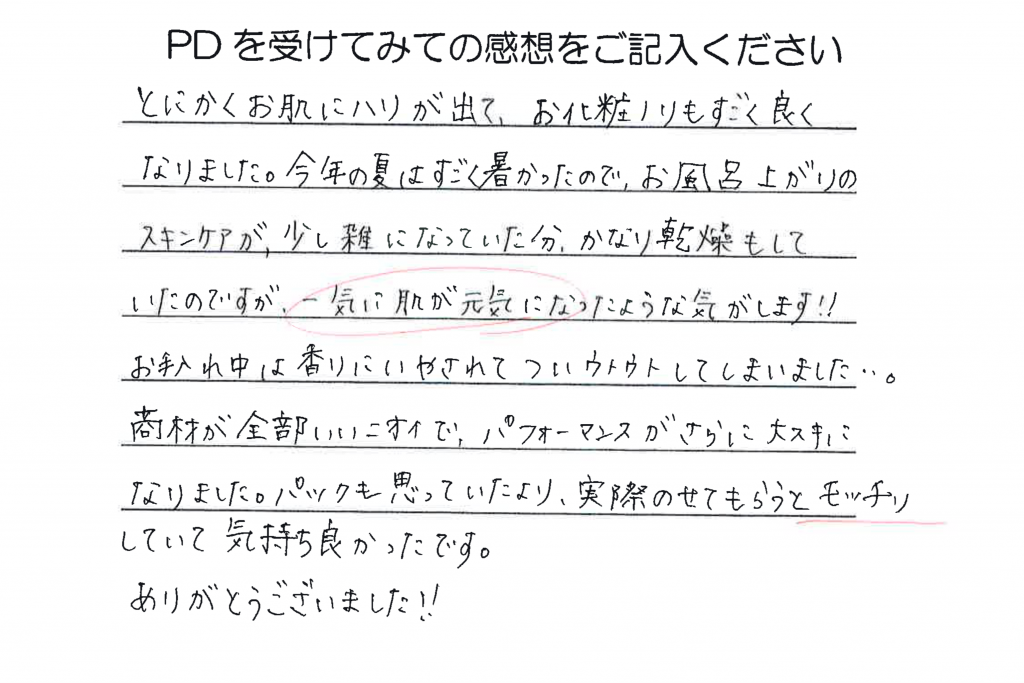 PDを受けてみての感想をご記入ください
とにかくお肌にハリが出て、お化粧ノリもすごく良く
なりました。今年の夏はすごく暑かったので、お風呂上がりの
スキンケアが、少し雑になっていた分、かなり乾燥もして
いたのですが、一気に肌が元気になったような気がします!!
お手入れ中は香りにいやされてついウトウトしてしまいました…。
商材が全部いいニオイで、パフォーマンスがさらに大スキに
なりました。パックも思っていたより、実際のせてもらうとモッチリ
していて気持ち良かったです。
ありがとうございました!!